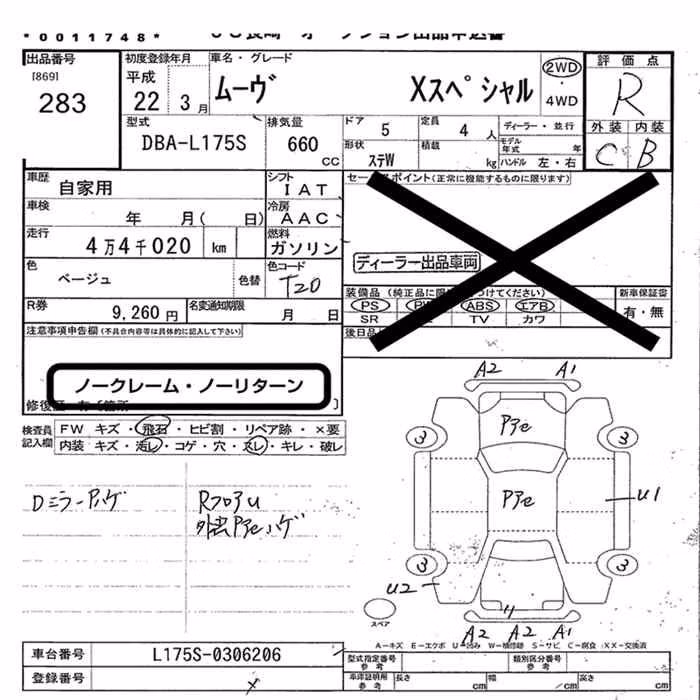 *0011748*
出品番号
[869]
283
初度登録年月
平成
22 3月
車名・グレード
ムーヴ Xスペシャル
2WD
・
4WD
評価点
R
外装 内装
C B
型式
DBA-L175S
排気量
660
CC
ドア
5
定員
4人
ディーラー・並行
形状
ステW
積載
kg
モデル年式 年
ハンドル 左・右
車歴
自家用
シフト
IAT
車検
年 月( 日)
冷房
AAC
走行
4万4千020 km
燃料
ガソリン
色
ベージュ
色替
色コード
T20
R券
9,260円
名変通知期限
月 日
セールスポイント(正常に機能するものに限ります)
ディーラー出品車両
PS
ABS
エアB
SR
TV
カワ
新車保証書
有・無
注意事項申告欄(不具合内容等は具体的に記入して下さい)
ノークレーム・ノーリターン
検査員
記入欄
FW キズ・飛石・ヒビ割・リペア跡・×要
内装 キズ・汚レ・コゲ・穴・スレ・キレ・破レ
Dミラーアハゲ
RフロアU
A2 A1
3 3
U1
3 3
U2
A2 A2 A1
スペア
A―キズ E―エクボ U―凹み W―補修跡 S―サビ C―腐食 ××―交換済
車台番号
L175S-0306206
登録番号
型式指定番号
参考
類別区分番号
参考
車庫証明用
参考
長さ cm
幅 cm
高さ cm